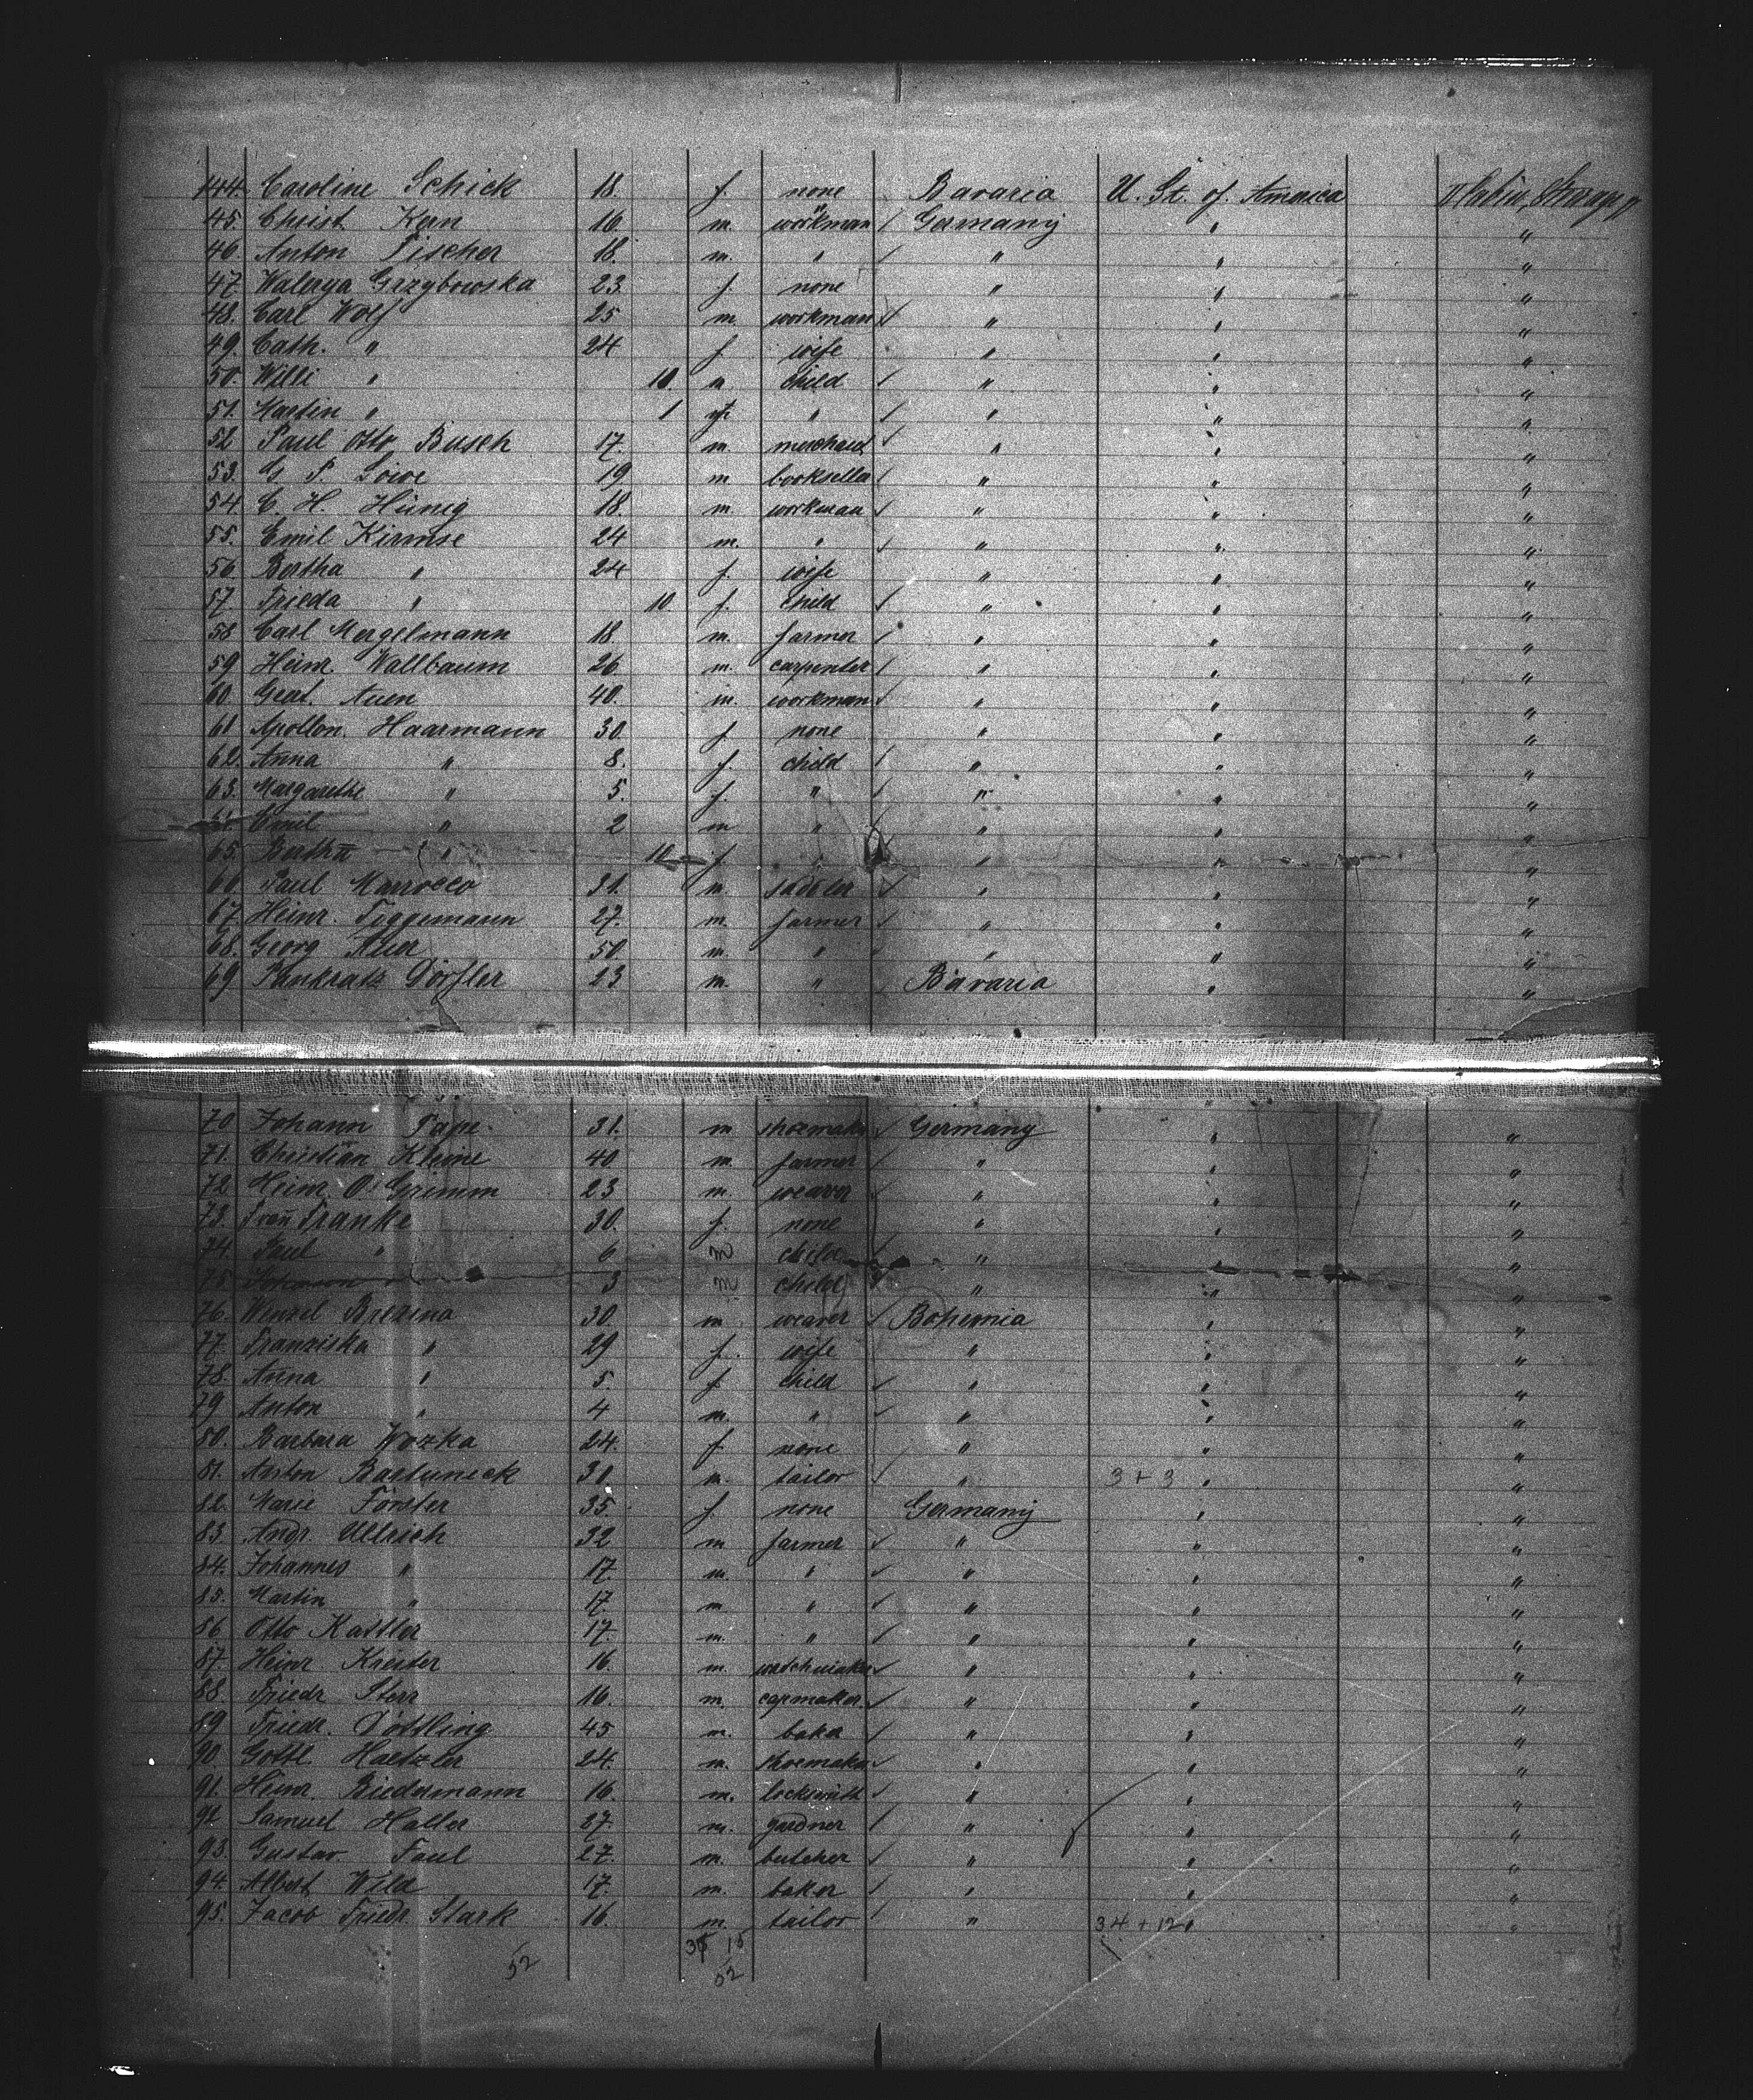 144. Caroline Schick 18. f. none Bavaria U. St. of America II Cabin, Steerage
45. Christ. Kern 16. m. workman / Germany " "
46. Anton Fischer 18. m. " / " " "
47. Walerya Grzybowska 23. f. none " " "
48. Carl Wolf 25 m. workman / " " "
49. Cath. " 24 f. wife " " "
50. Willi " 10. m. child / " " "
51. Martin " 1 " / " " "
52 Paul Otto Busch 17. m. merchant / " " "
53. G. P. Löwe 19 m bookseller / " " "
54. C. H. Hünig 18. m. workman / " " "
55. Emil Kirmse 24 m. " / " " "
56 Bertha " 24 f. wife " " "
57. Frieda " 10 f. child / " " "
58 Carl Mergelmann 18. m. farmer / " " "
59 Heinr. Wallbaum 26 m. carpenter / " " "
60 Auen 40. m. workman / " " "
61 Apollon. Haarmann 30. f. none " " "
62. Anna " 8. f. child / " " "
63. Margarethe " 5. f. " / " " "
64. Emil " 2 m " / " " "
65. Bertha " 10 f. " " " "
66. Paul Marrocco 31. m. saddler / " " "
67. Heinr. Tiggemann 27. m. farmer / " " "
68. Georg Auer 50. m. " / " " "
69 Pankratz Dörfler 23 m. " Bavaria " "
70 Johann Pape. 31. m shoemaker / Germany " "
71. Christian Kleine 40 m. farmer / " " "
72 Heinr. O. Grimm 23 m. weaver / " " "
73. Frau Franke 30. f. none " " "
74. Paul " 6 m child / " " "
75 3 m child " " "
76. Wenzel Brezina 30. m weaver / Bohemia " "
77. Franziska " 29 f. wife " " "
78. Anna " 5. f. child / " " "
79 Anton " 4 m. " / " " "
80. Barbara Wozka 24. f. none " " "
81. Anton Bartuneck 30. m. tailor / " 3 + 3 " "
82. Marie Förster 35. f. none Germany " "
83. Andr. Ullrich 32 m farmer / " " "
84. Johannes " 17. m. " / " " "
85. Martin " 17. m " / " " "
86 Otto Kattler 17. m. " / " " "
87. Heinr. Kreiter 16. m. watchmaker / " " "
88 Friedr Sterr 16. m. capmaker / " " "
89 Friedr. Döttling 45 m. baker / " " "
90 Gottl. Haetzler 24. m. shoemaker / " " "
91. Heinr. Biedermann 16. m. locksmith / " " "
92. Samuel Haller 27. m. gardner / " " "
93. Gustav Faul 27. m. butcher / " " "
94. Albert Wild 17. m. baker / " " "
95. Jacob Friedr. Stark 16. m. tailor / " 34 + 12 " "
52 15
52